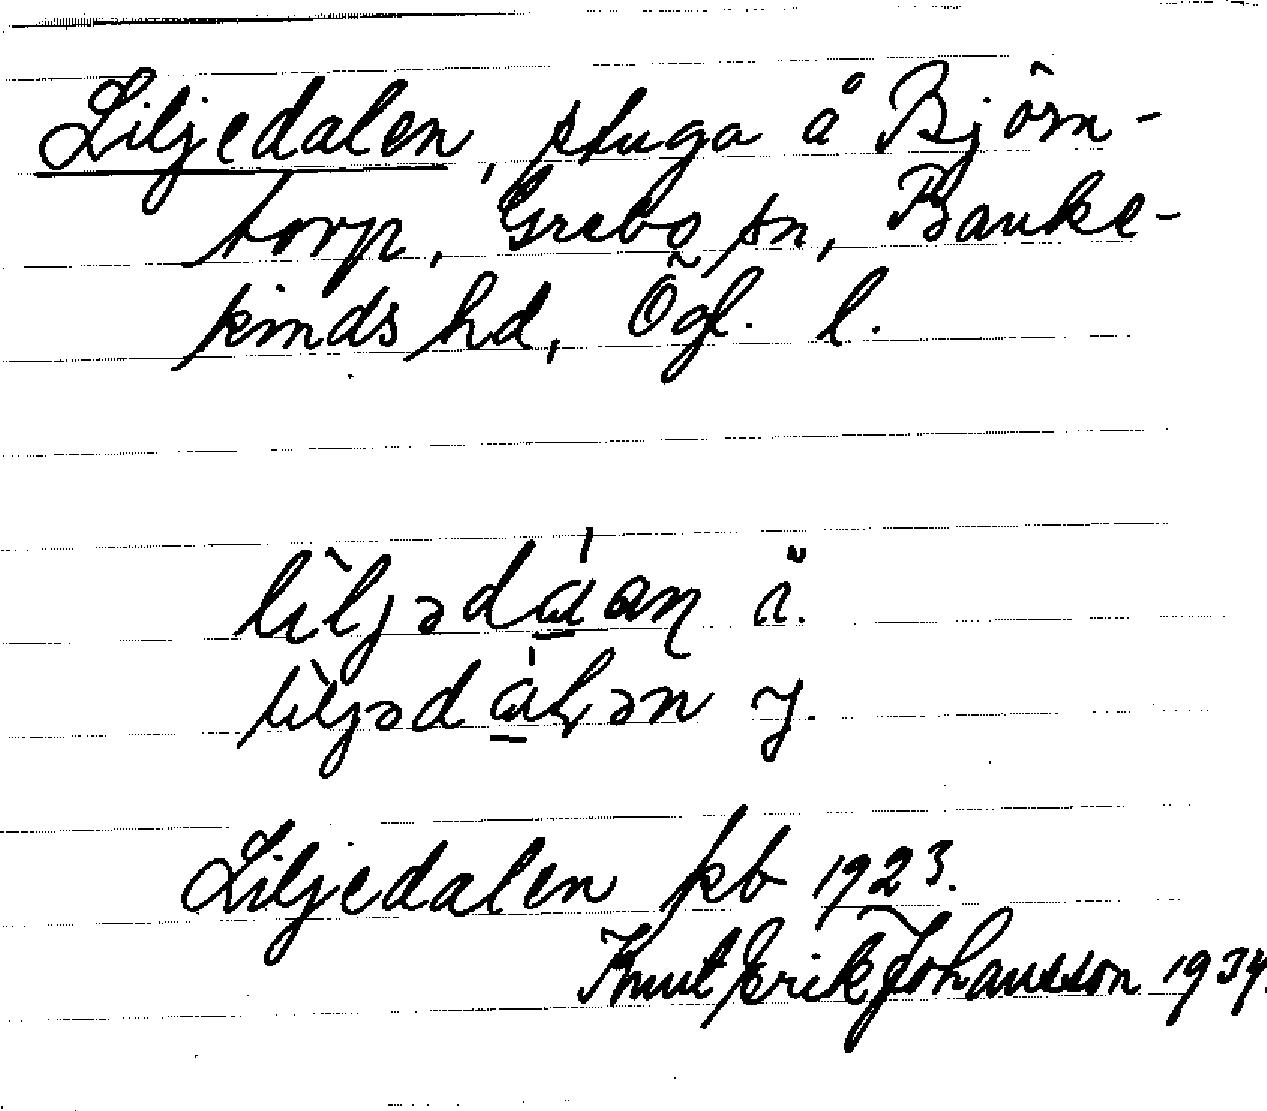 Liljedalen, stuga å Björn-
torp, Grebo sn, Banke-
kinds hd, Ögl. l.
lìljədɑ́ɑn ä.
lìljədɑ́ɽən y.
Liljedalen kb 1923.
Knut Erik Johansson 1934.